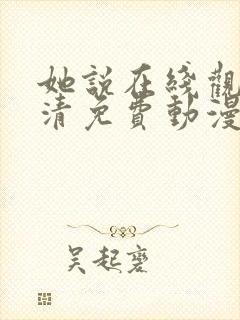 她說在綫觀
清免費動漫
吴起裦